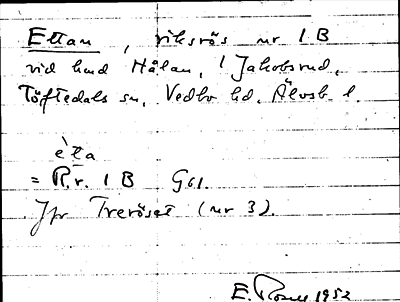 Ettan, riksrös nr 1 B
vid hmd Hålan, Jakobsrud,
Töftedals sn, Vedbo hd, Älvsb l.
èta
= R.r. 1 B G61.
Jfr Treröset (nr 3).
E. 1952